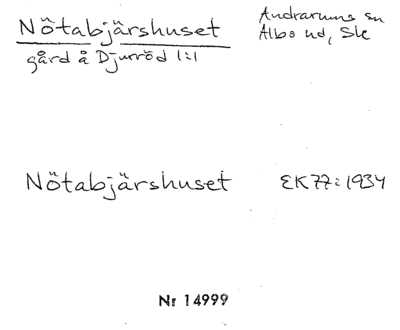 Nötabjärshuset
Andrarums sn
Albo hd, Sk
gård å Djurröd 1:1
Nötabjärshuset EK77:1934
Nr 14999